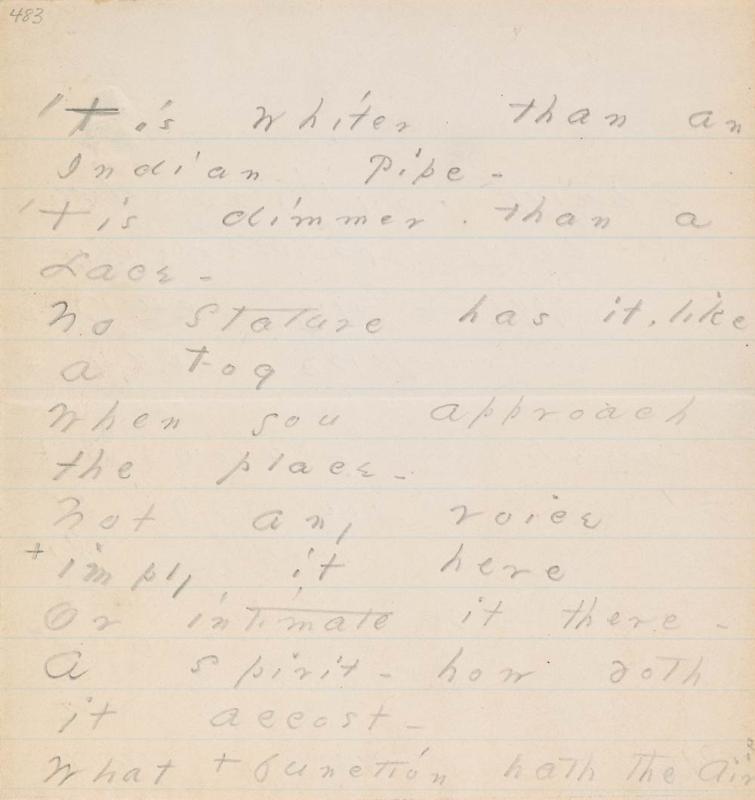 483
'Tis whiter than an
Indian Pipe -
'Tis dimmer than a
Lace -
No stature has it, like
a Fog
When you approach
the place -
Not any voice
+imply it here
Or intimate it there -
A spirit - how doth
it accost -
What +function hath the Air?